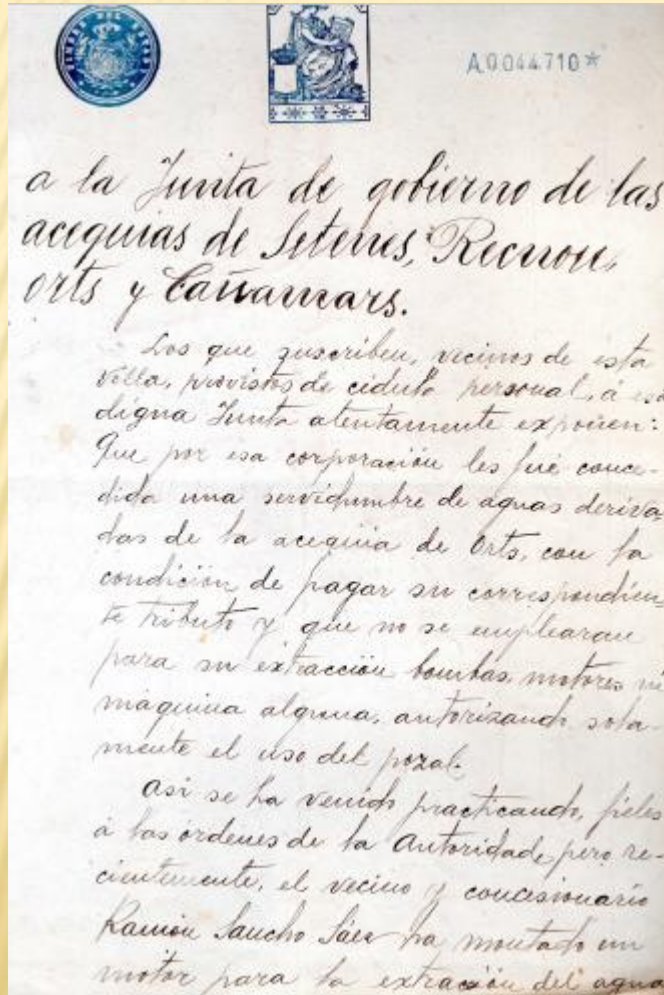 A.0044.710*
a la Junta de gobierno de las
acequias de Setenes, Recnou,
Orts y Cañamars.
Los que suscriben, vecinos de esta
villa, provistos de cédula personal, á esa
digna Junta atentamente exponen:
Que por esa corporación les fué conce-
dida una servidumbre de aguas deriva-
das de la acequia de Orts, con la
condición de pagar su correspondien-
te tributo y que no se emplearan
para su extracción bombas, motores ni
maquina alguna, autorizando sola-
mente el uso del pozal.
Asi se ha venido practicando, fieles
á las órdenes de la Autoridad, pero re-
cientemente, el vecino y concesionario
Ramón Sancho Sáez ha montado un
motor para la extracción del agua